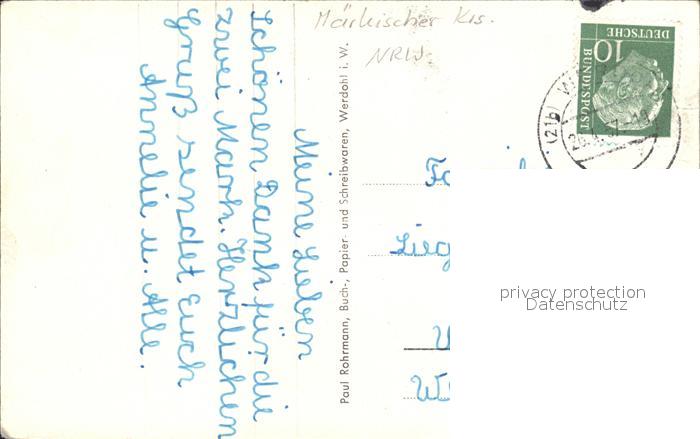 Meine Lieben
Schönen Dank für die
zwei Mark. Herzlichen
Gruß sendet Euch
Annelie u. Alle.
Paul Rohrmann, Buch-, Papier- und Schreibwaren, Werdohl i. W.
Märkischer Krs.
NRW.
10
DEUTSCHE
BUNDESPOST
(21b) W
Lieg
privacy protection
Datenschutz